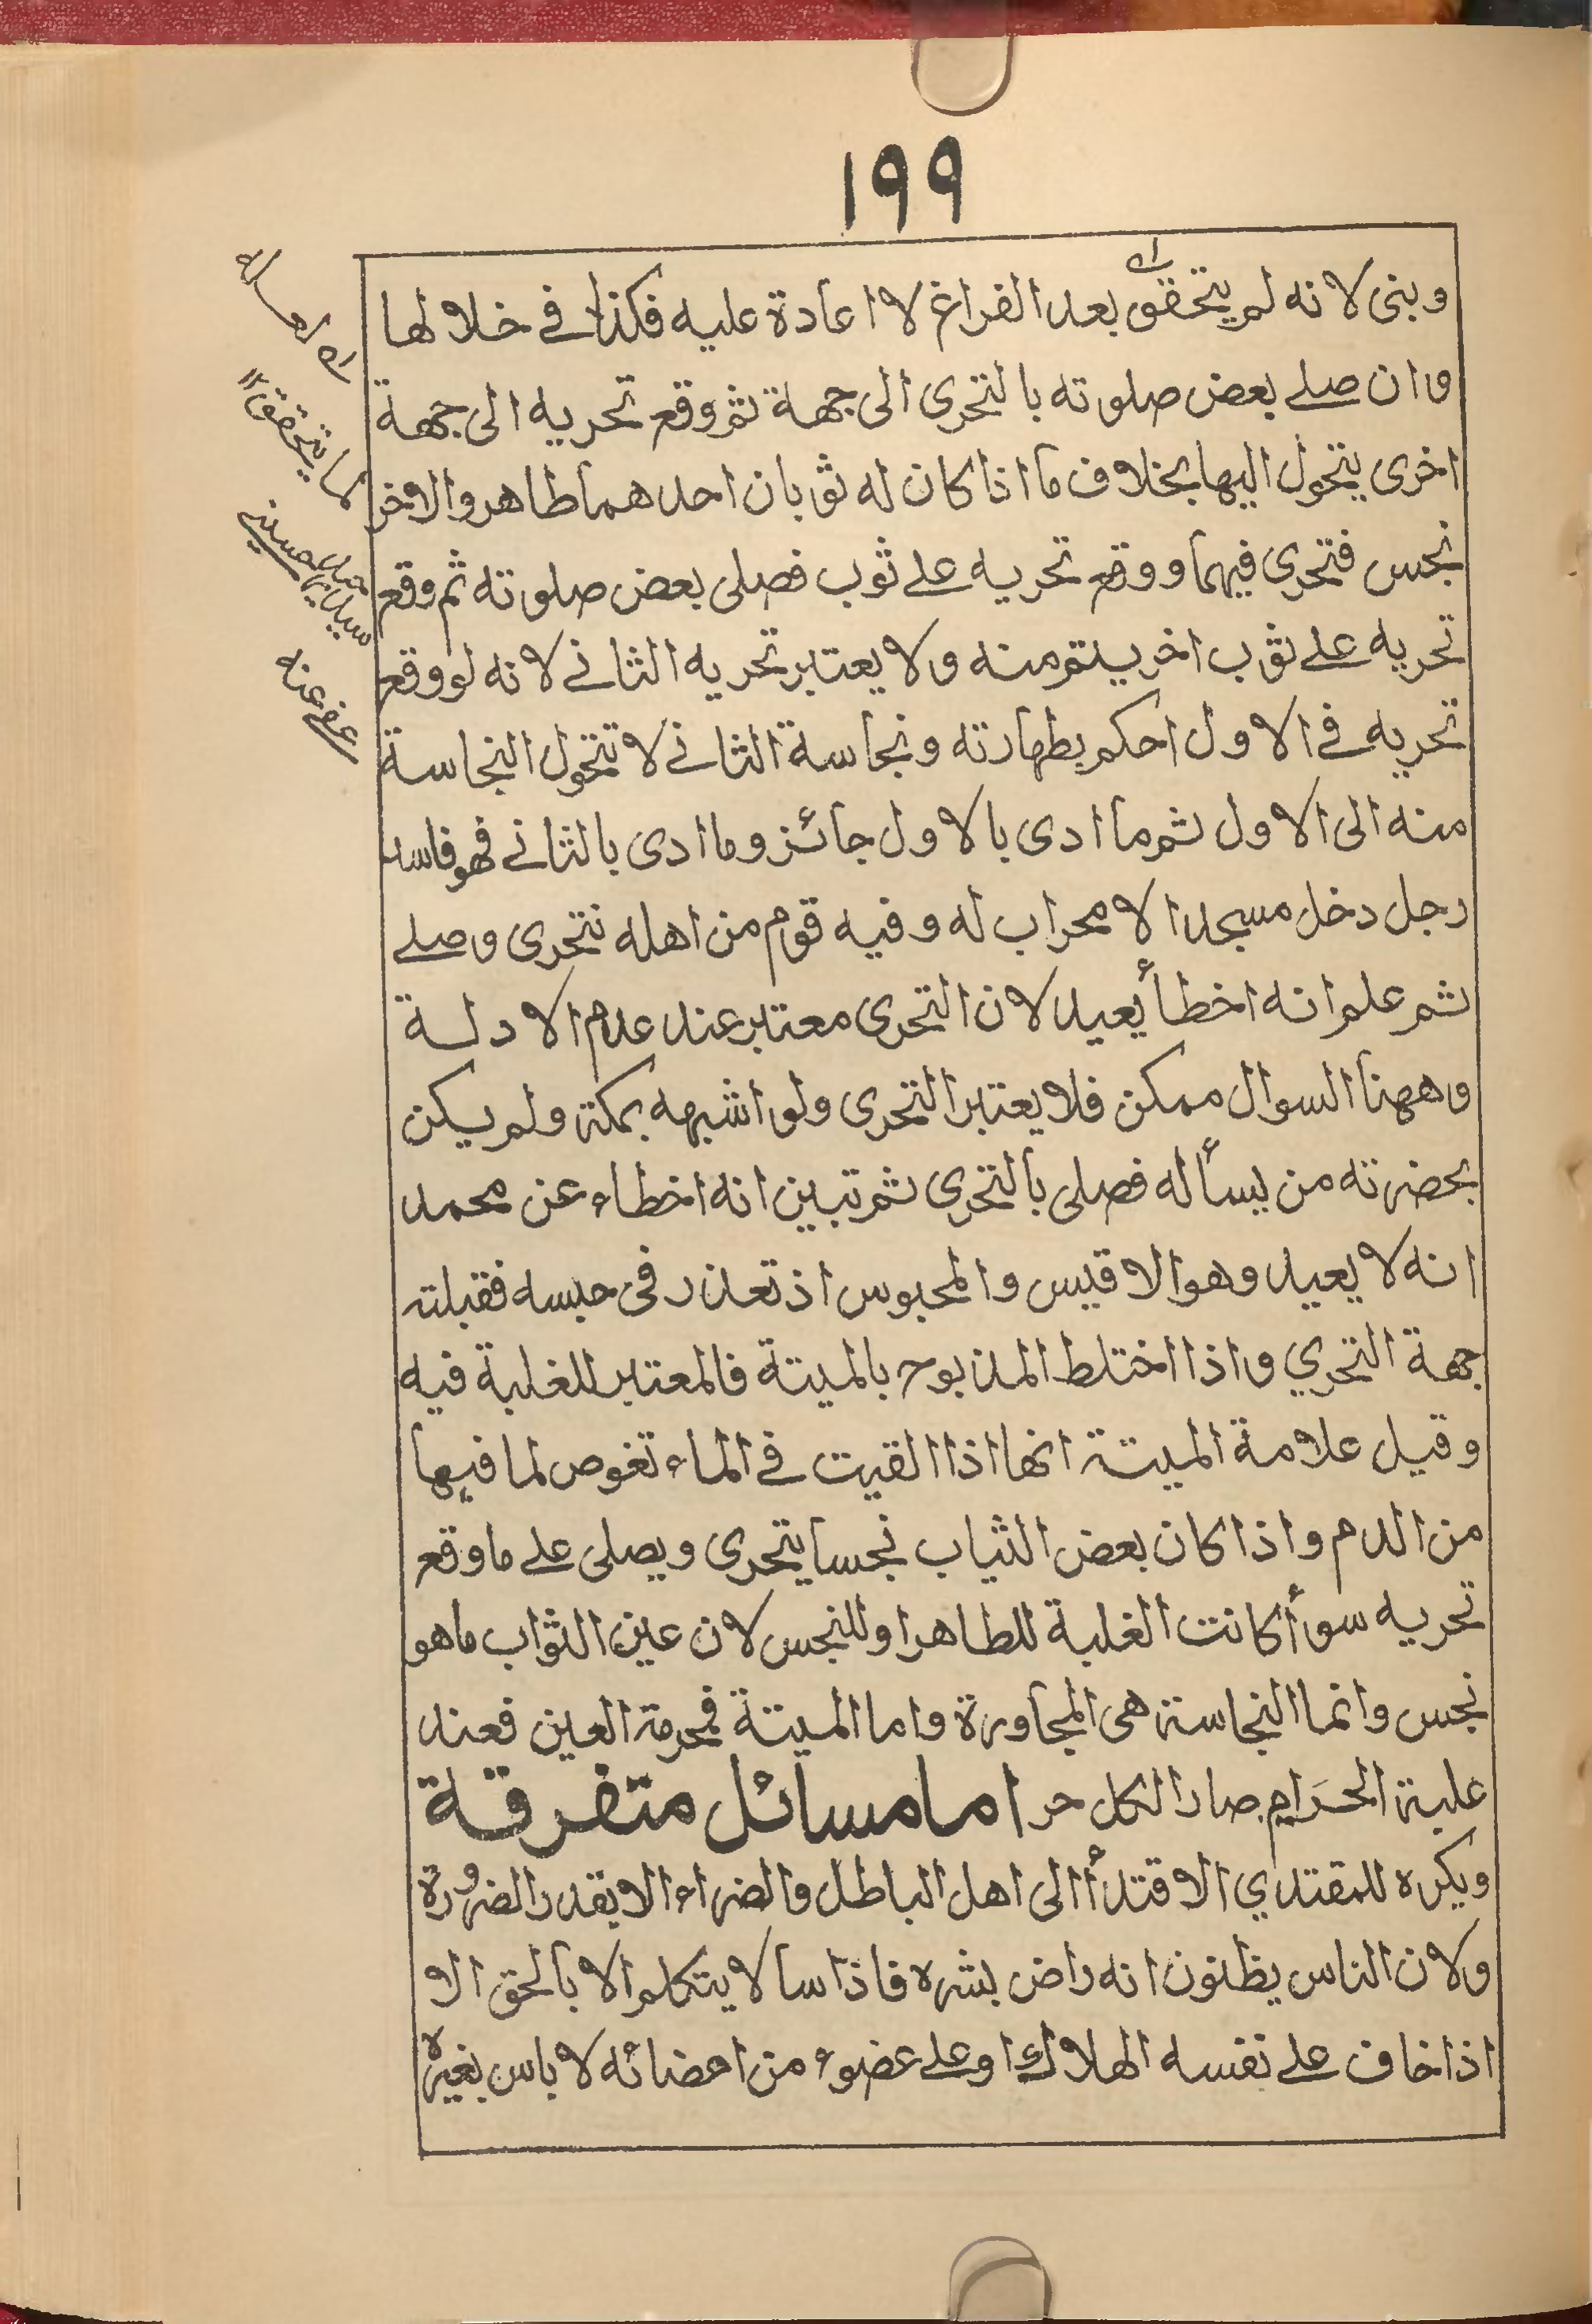 ١٩٩
وبنى لانه لم يتحقق بعد الفراغ لا اعادة عليه فكذا في خلالها
وان صلے بعض صلوته بالتحرى الى جهة ثم وقع تحريه الى جهة
اخرى يتحول اليها بخلاف ما اذا كان له ثوبان احدهما طاهر والاخر
نجس فتحرى فيهما ووقع تحريه علے ثوب فصلى بعض صلوته ثم وقع
تحريه علے ثوب اخر يستتر منه ولا يعتبر تحريه الثانے لانه لو وقع
تحريه في الاول احكم بطهارته ونجاسة الثانے لا تتحول النجاسة
منه الى الاول ثم ما ادى بالاول جائز وما ادى بالثانے فهو فاسد
رجل دخل مسجدا لا محراب له وفيه قوم من اهله نتحرى وصلے
ثم علم انه اخطأ يعيد لان التحرى معتبر عند عدم الادلة
وههنا السوال ممكن فلا يعتبر التحرى ولو اشبهه بمكة ولم يكن
بحضرته من يسأله فصلى بالتحرى ثم تبين انه اخطاء عن محمد
انه لا يعيد وهو الاقيس والمحبوس اذ تعذر في حبسه فقبلته
جهة التحري واذا اختلط المذبوح بالميتة فالمعتبر للغلبة فيه
وقيل علامة الميتة انها اذا القيت في الماء تغوص لما فيها
من الدم واذا كان بعض الثياب نجسا يتحرى ويصلى علے ما وقع
تحريه سوأ كانت الغلبة للطاهر او للنجس لان عين الثواب ما هو
نجس وانما النجاسة هى المجاورة واما الميتة فمحرمة العين فعند
علبة الحرام صار الكل حر اما مسائل متفرقة
ويكره للمقتدي الاقتدأ الى اهل الباطل والضراء الا بقدر الضرورة
ولان الناس يظنون انه راض بشره فاذا سا لا يتكلم الا بالحق الا
اذا خاف علے نفسه الهلاك او علے عضوء من اعضائه لا باس بغيره
اى
لما يتحقق ١٢
حسينے
عفے عنه